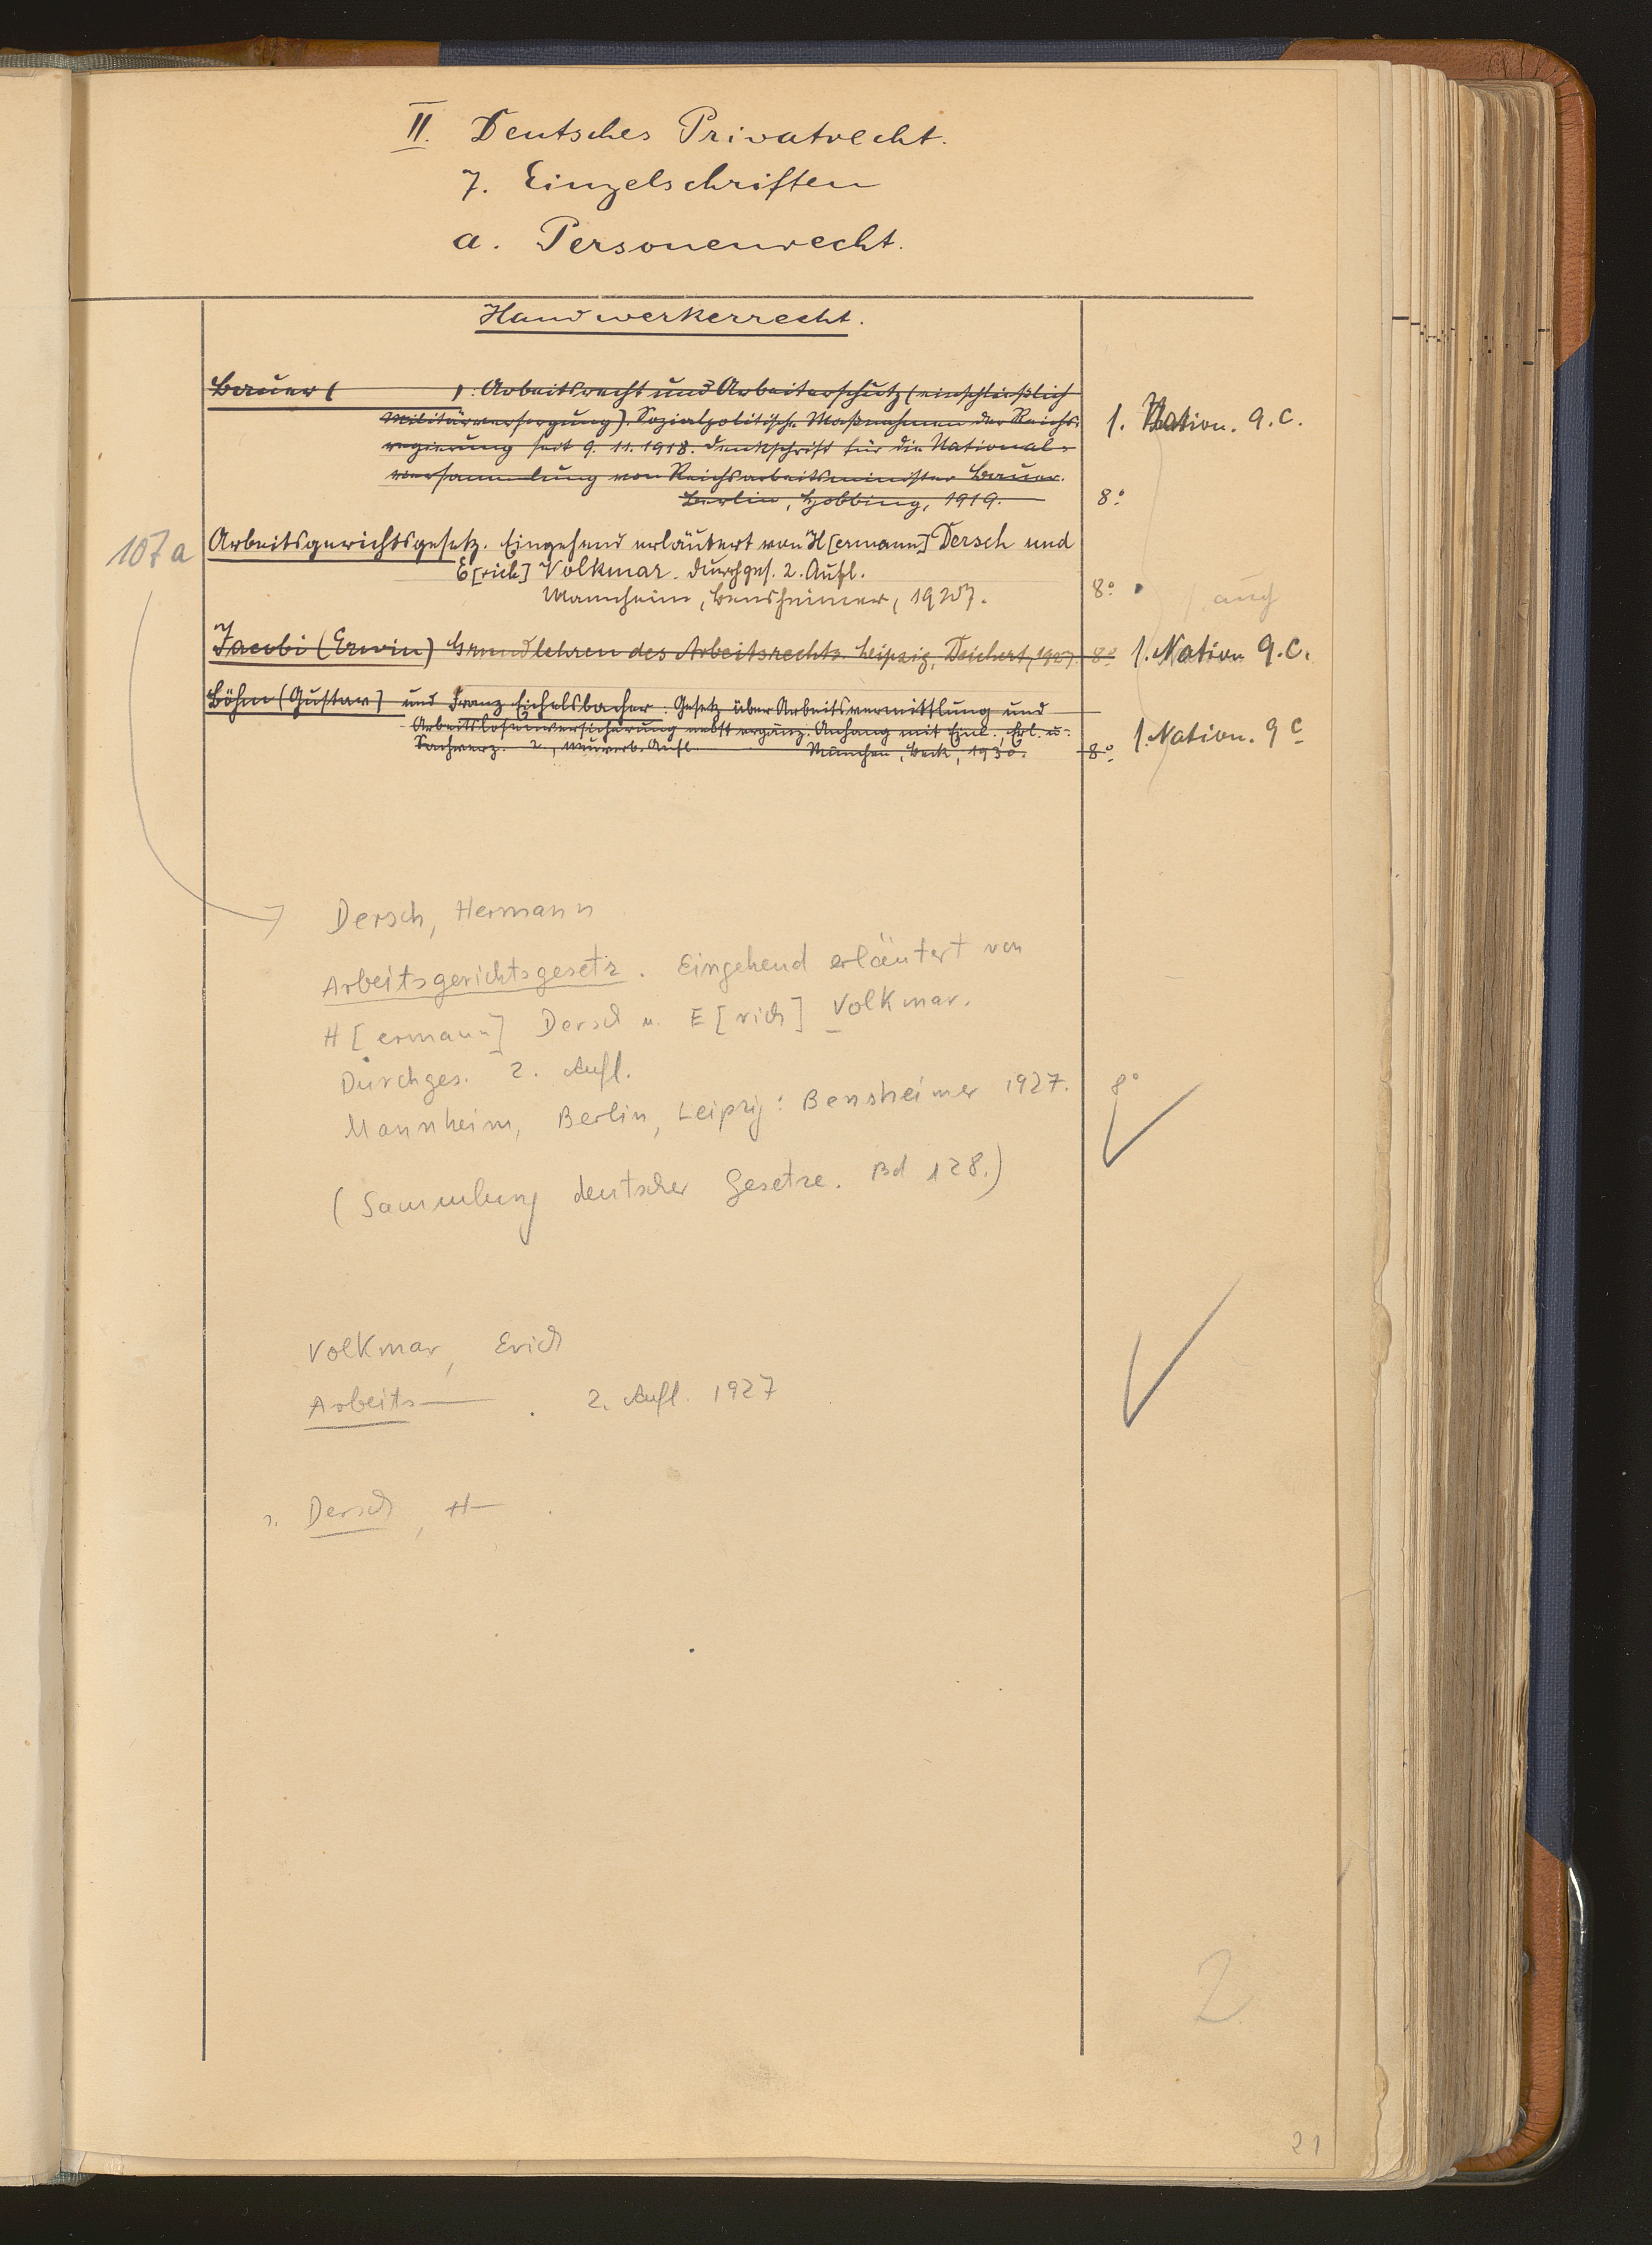 II. Deutsches Privatrecht.
7. Einzelschriften
a. Personenrecht.
Handwerkerrecht.
Bauer ( ): Arbeitsrecht und Arbeiterschutz (einschließlich
Militärversorgung). Sozialpolitische Maßnahmen der Reichs-
regierung seit 9. 11. 1918. Denkschrift für die National-
versammlung von Reichsarbeitsminister Bauer.
Berlin, Hobbing, 1919. 8°
1. Nation. 9. C.
107a
Arbeitsgerichtsgesetz. Eingehend erläutert von H[ermann] Dersch und
E[rich] Volkmar. Durchges. 2. Aufl.
Mannheim, Bensheimer, 1927. 8°
Jacobi (Erwin) Grundlehren des Arbeitsrechts. Leipzig, Deichert, 1927. 8° 1. Nation 9. C.
Böhm (Gustav) und Franz Eichelsbacher: Gesetz über Arbeitsvermittlung und
Arbeitslosenversicherung nebst ergänz. Anhang mit Einl., Erl. u.
Sachverz. 2., neuverb. Aufl. München, Beck, 1930. 8° 1. Nation. 9 C
Dersch, Hermann
Arbeitsgerichtsgesetz. Eingehend erläutert von
H[ermann] Dersch u. E[rich] Volkmar.
Durchges. 2. Aufl.
Mannheim, Berlin, Leipzig: Bensheimer 1927. 8°
(Sammlung deutscher Gesetze. Bd 128.)
Volkmar, Erich
Arbeits— . 2. Aufl. 1927
s. Dersch, H— .
2
21